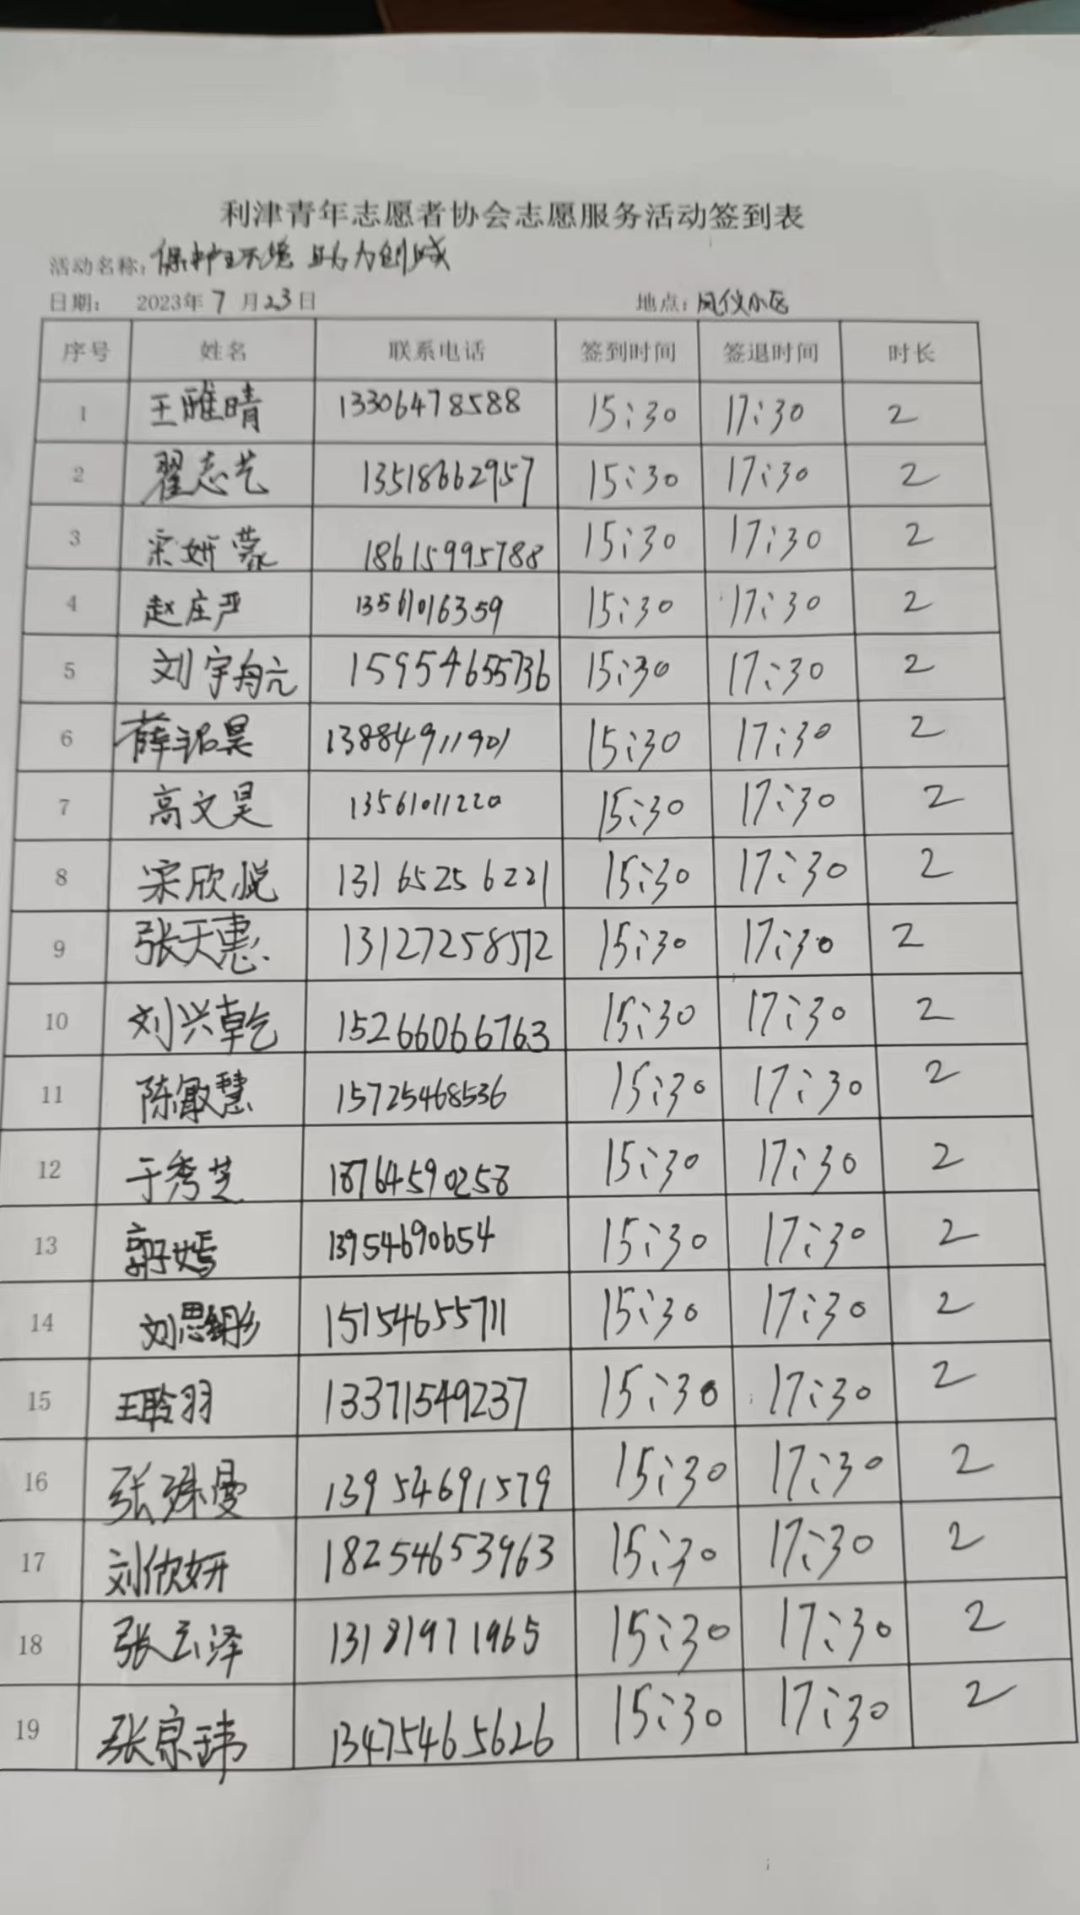 利津青年志愿者协会志愿服务活动签到表
活动名称:保护环境 助力创城
日期: 2023年7月23日 地点:凤仪小区
序号 姓名 联系电话 签到时间 签退时间 时长
1 王雅晴 13306478588 15:30 17:30 2
2 翟志艺 13518662957 15:30 17:30 2
3 宋妍蒙 18615995788 15:30 17:30 2
4 赵庄严 13561016359 15:30 17:30 2
5 刘宇航 15954655736 15:30 17:30 2
6 薛洺昊 13884911901 15:30 17:30 2
7 高文昊 13561011220 15:30 17:30 2
8 宋欣悦 13165256221 15:30 17:30 2
9 张天惠 13127258512 15:30 17:30 2
10 刘兴乾 15266066763 15:30 17:30 2
11 陈敏慧 15725468536 15:30 17:30 2
12 于秀芝 18764590258 15:30 17:30 2
13 郭嫣 13954690654 15:30 17:30 2
14 刘思彤 15154655711 15:30 17:30 2
15 王聆羽 13371549237 15:30 17:30 2
16 张殊曼 13954691579 15:30 17:30 2
17 刘欣妍 18254653963 15:30 17:30 2
18 张云泽 13181971965 15:30 17:30 2
19 张宗玮 13475465626 15:30 17:30 2